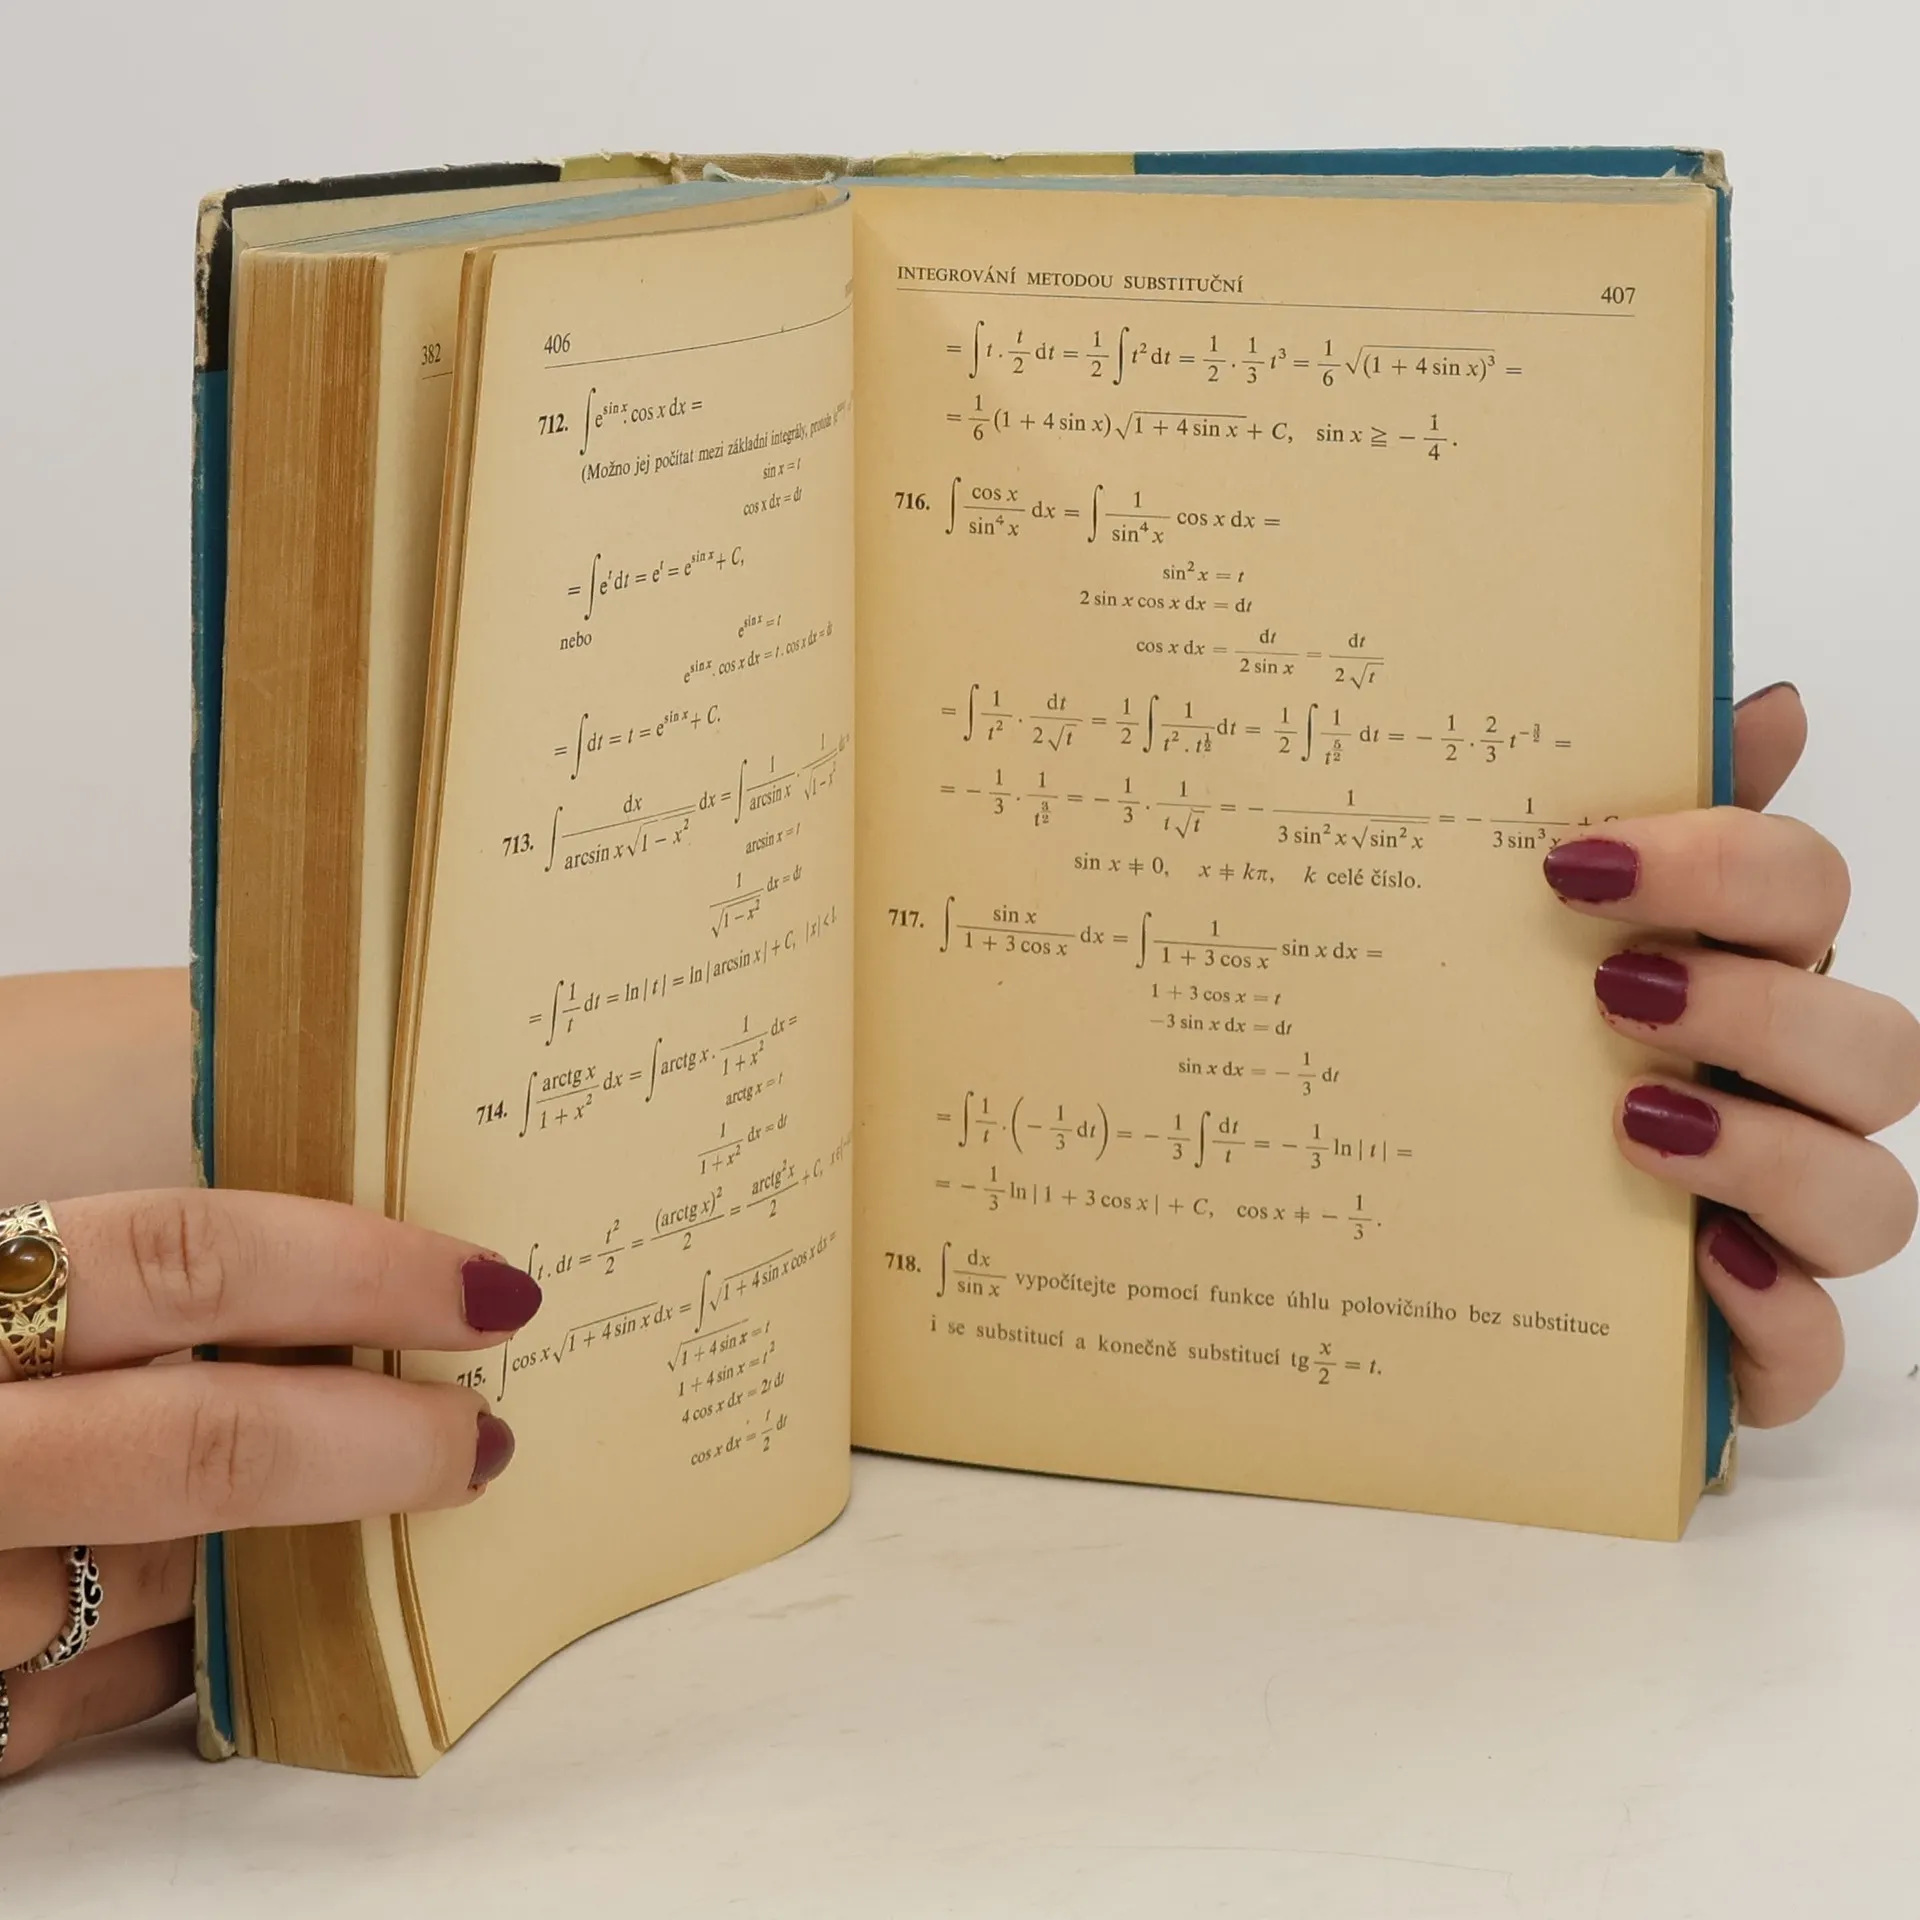 382
406
712. ∫ e^{sin x} . cos x dx =
(Možno jej počítat mezi základní integrály, protože
sin x = t
cos x dx = dt
= ∫ e^t dt = e^t = e^{sin x} + C,
nebo
e^{sin x} = t
e^{sin x} . cos x dx = t . cos x dx = dt
= ∫ dt = t = e^{sin x} + C.
713. ∫ dx/(arcsin x √(1 − x²)) dx = ∫ 1/(arcsin x) . 1/√(1 − x²)
arcsin x = t
1/√(1 − x²) dx = dt
= ∫ 1/t dt = ln | t | = ln | arcsin x | + C, |x| < 1.
714. ∫ (arctg x)/(1 + x²) dx = ∫ arctg x . 1/(1 + x²) dx =
arctg x = t
1/(1 + x²) dx = dt
∫ t . dt = t²/2 = (arctg x)²/2 = (arctg² x)/2 + C,
715. ∫ cos x √(1 + 4 sin x) dx = ∫ √(1 + 4 sin x) cos x dx =
√(1 + 4 sin x) = t
1 + 4 sin x = t²
4 cos x dx = 2t dt
cos x dx = t/2 dt
INTEGROVÁNÍ METODOU SUBSTITUČNÍ 407
= ∫ t . t/2 dt = 1/2 ∫ t² dt = 1/2 . 1/3 t³ = 1/6 √((1 + 4 sin x)³) =
= 1/6 (1 + 4 sin x) √(1 + 4 sin x) + C, sin x ≧ − 1/4 .
716. ∫ (cos x)/(sin⁴ x) dx = ∫ 1/(sin⁴ x) cos x dx =
sin² x = t
2 sin x cos x dx = dt
cos x dx = dt/(2 sin x) = dt/(2 √t)
= ∫ 1/t² . dt/(2 √t) = 1/2 ∫ 1/(t² . t^{1/2}) dt = 1/2 ∫ 1/t^{5/2} dt = − 1/2 . 2/3 t^{−3/2} =
= − 1/3 . 1/t^{3/2} = − 1/3 . 1/(t √t) = − 1/(3 sin² x √(sin² x)) = − 1/(3 sin³ x) + C
sin x ≠ 0, x ≠ kπ, k celé číslo.
717. ∫ (sin x)/(1 + 3 cos x) dx = ∫ 1/(1 + 3 cos x) sin x dx =
1 + 3 cos x = t
−3 sin x dx = dt
sin x dx = − 1/3 dt
= ∫ 1/t . (− 1/3 dt) = − 1/3 ∫ dt/t = − 1/3 ln | t | =
= − 1/3 ln | 1 + 3 cos x | + C, cos x ≠ − 1/3 .
718. ∫ dx/(sin x) vypočítejte pomocí funkce úhlu polovičního bez substituce
i se substitucí a konečně substitucí tg x/2 = t.